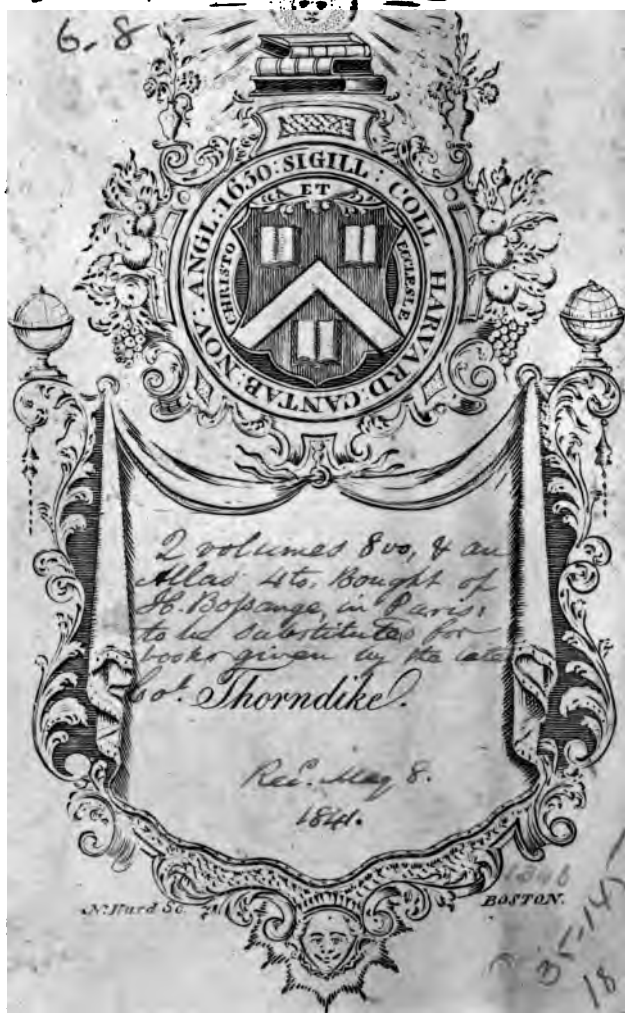 6-8
SIGILL : COLL HARVARD : CANTAB : NOV : ANGL : 1650 :
ET
CHRISTO
ECCLESIÆ
2 volumes 8vo, & an
Atlas 4to, Bought of
H. Bossange, in Paris;
to be substitutes for
books given by the late
Col. Thorndike.
Rec. May 8.
1841.
N. Hurd Sc.
BOSTON.
18